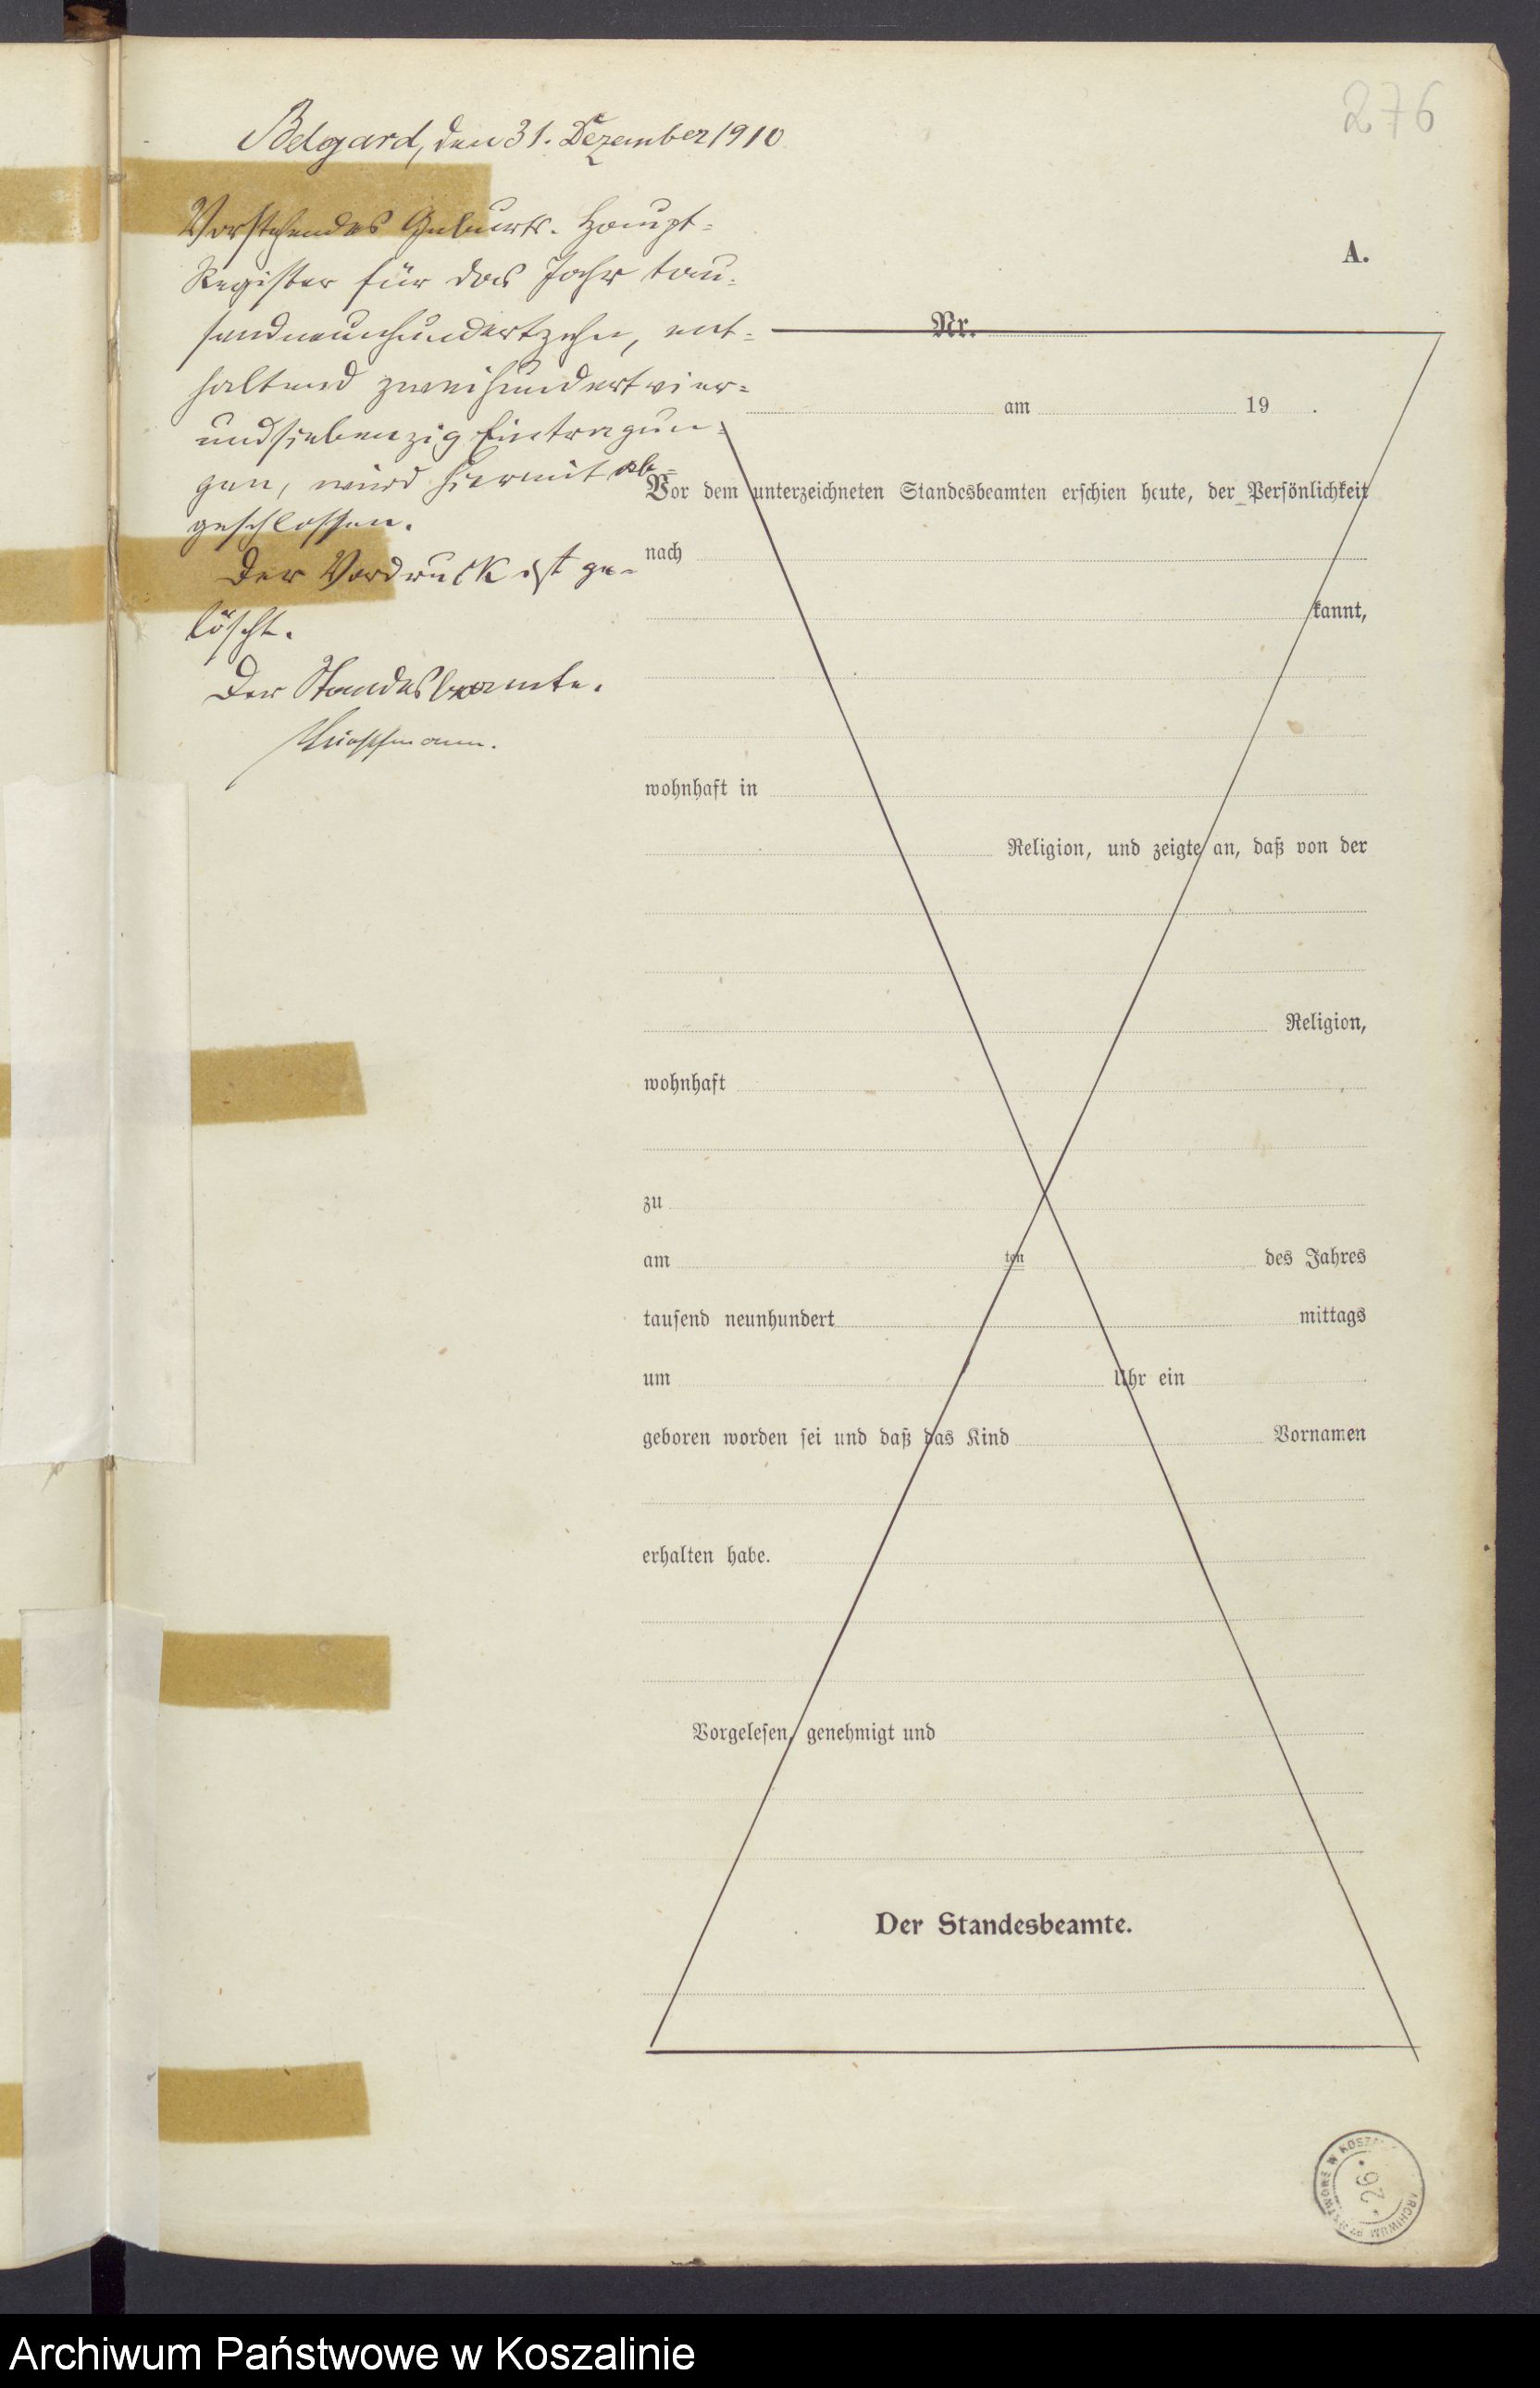 276
Belgard, den 31. Dezember 1910
Vorstehendes Geburts-Haupt-
Register für das Jahr tau-
sendneunhundertzehn, ent-
haltend zweihundertvier-
undsiebenzig Eintragun-
gen, wird hiermit ab-
geschlossen.
Der Vordruck ist ge-
löscht.
Der Standesbeamte.
A.
Nr.
am 19 .
Vor dem unterzeichneten Standesbeamten erschien heute, der Persönlichkeit
nach
kannt,
wohnhaft in
Religion, und zeigte an, daß von der
Religion,
wohnhaft
zu
am ten des Jahres
tausend neunhundert mittags
um Uhr ein
geboren worden sei und daß das Kind Vornamen
erhalten habe.
Vorgelesen, genehmigt und
Der Standesbeamte.
ARCHIWUM W
26
Archiwum Państwowe w Koszalinie